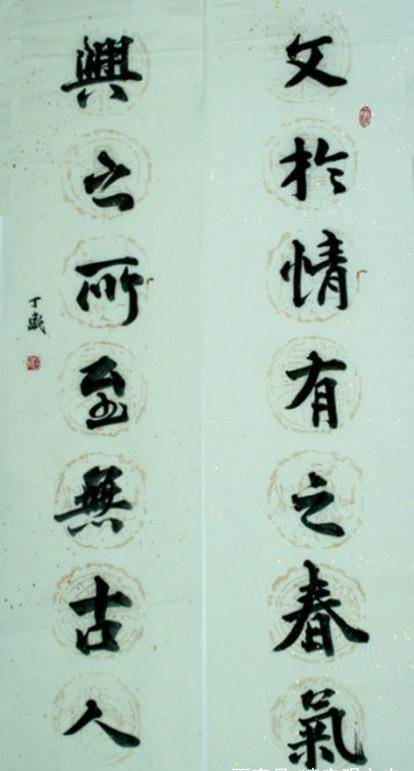 文於情有之春氣
興之所至無古人